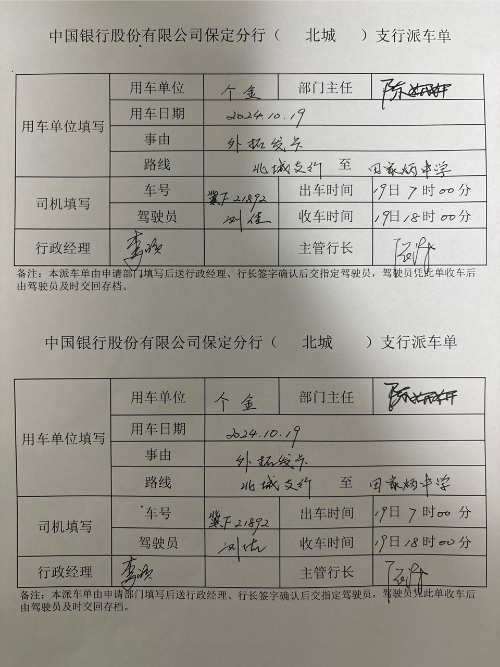 中国银行股份有限公司保定分行( 北城 )支行派车单
用车单位填写 用车单位 个金 部门主任
用车日期 2024.10.19
事由 外拓发卡
路线 北城支行 至 田家炳中学
司机填写 车号 冀F21892 出车时间 19日7时00分
驾驶员 刘佳 收车时间 19日18时00分
行政经理 主管行长
备注:本派车单由申请部门填写后送行政经理、行长签字确认后交指定驾驶员,驾驶员凭此单收车后
由驾驶员及时交回存档。
中国银行股份有限公司保定分行( 北城 )支行派车单
用车单位填写 用车单位 个金 部门主任
用车日期 2024.10.19
事由 外拓发卡
路线 北城支行 至 田家炳中学
司机填写 车号 冀F21892 出车时间 19日7时00分
驾驶员 刘佳 收车时间 19日18时00分
行政经理 主管行长
备注:本派车单由申请部门填写后送行政经理、行长签字确认后交指定驾驶员,驾驶员凭此单收车后
由驾驶员及时交回存档。